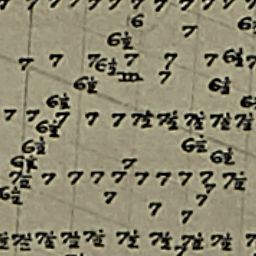 7 7 7 7 7 7 7 7 7 7 7
6 6
7
6½
7 7 7 6½ 7 7 7 6½ 7
6½ m 7 6½
6½
7 7 7 7 7 7½ 7½ 7½ 7½ 7½
6½
6½ 6½ 6½
6½ 7
7½ 7 7 7 7 7 7 7 7 7½
6½ 7 7 7
7 7
7½ 7½ 7½ 7½ 7½ 7½ 7½ 7½ 7